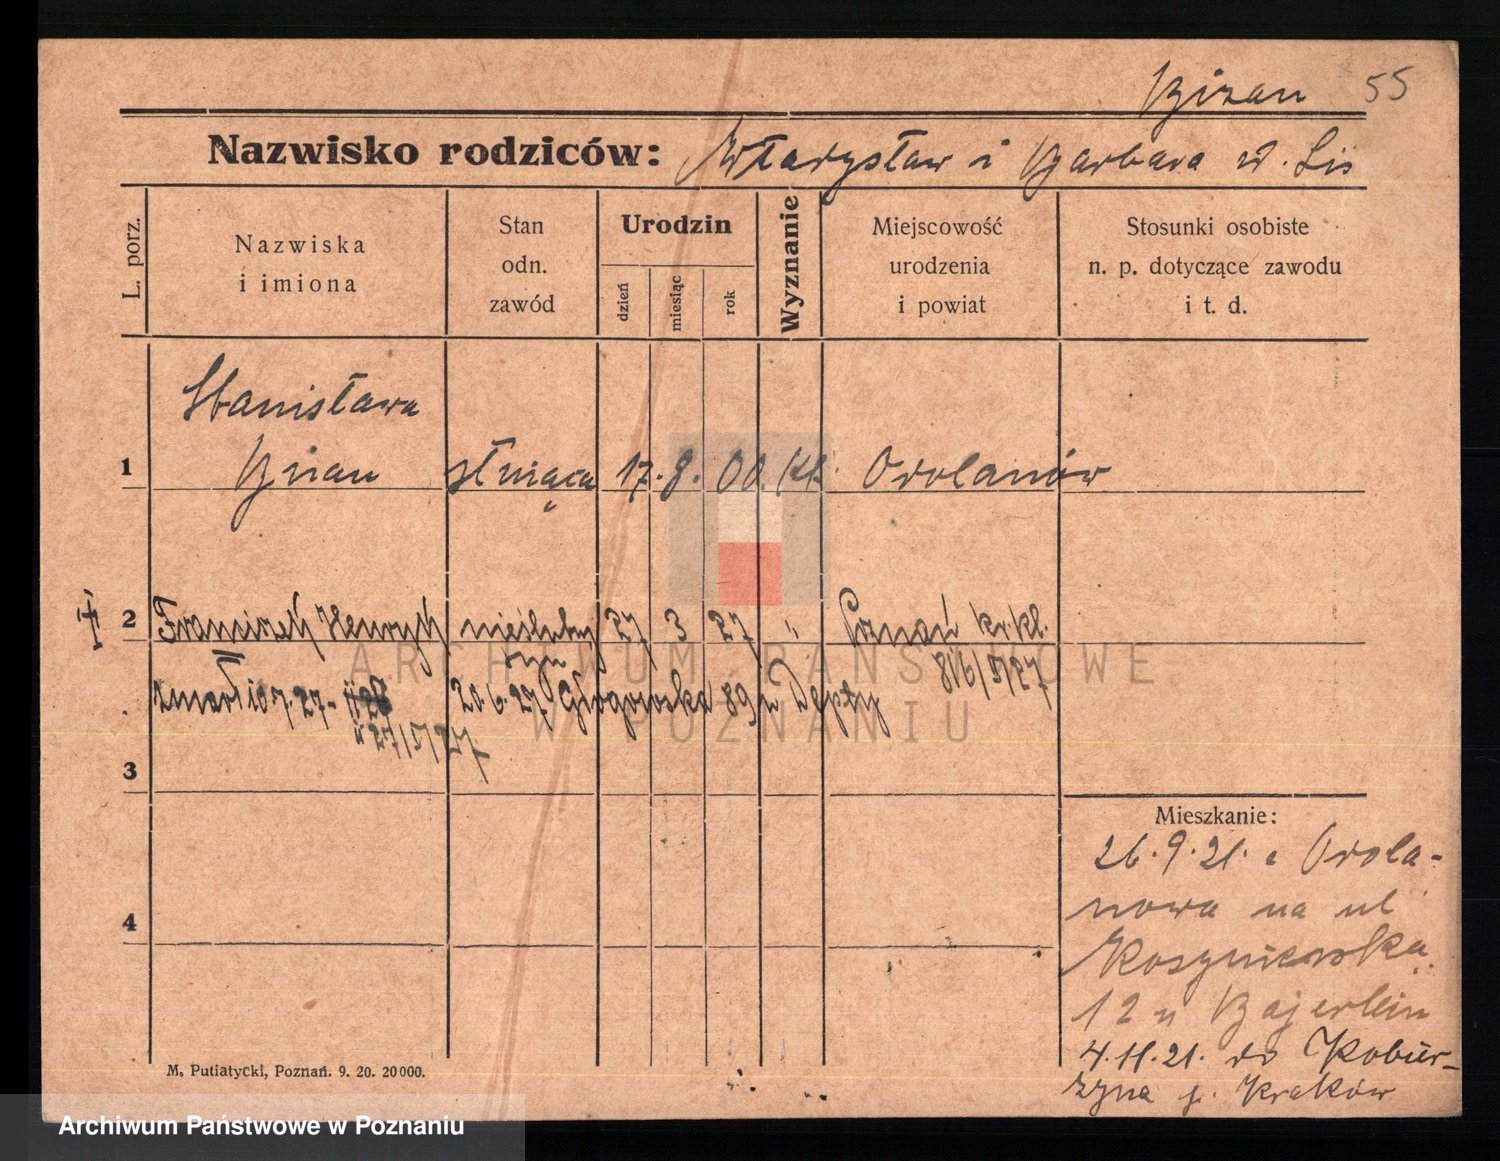 Bizan 55
Nazwisko rodziców: Władysław i Barbara z d. Lis
L. porz.
Nazwiska
i imiona
Stan
odn.
zawód
Urodzin
dzień
miesiąc
rok
Wyznanie
Miejscowość
urodzenia
i powiat
Stosunki osobiste
n. p. dotyczące zawodu
i t. d.
Stanisława
1 Bizan służąca 17. 8. 00 kt. Odolanów
2 Franciszek Henryk nieślubny 27 3 27 " Poznań kr. kl.
syn 816/5/27
zmarł 10.7.27 20.6.27 Głogowska 89
3
4
Mieszkanie:
26.9.21. z Odola-
nowa na ul
12 u Bajerlein
4.11.21. do Kobier-
zyna p. Kraków
M. Putiatycki, Poznań. 9. 20. 20000.
ARCHIWUM PAŃSTWOWE
W POZNANIU
Archiwum Państwowe w Poznaniu